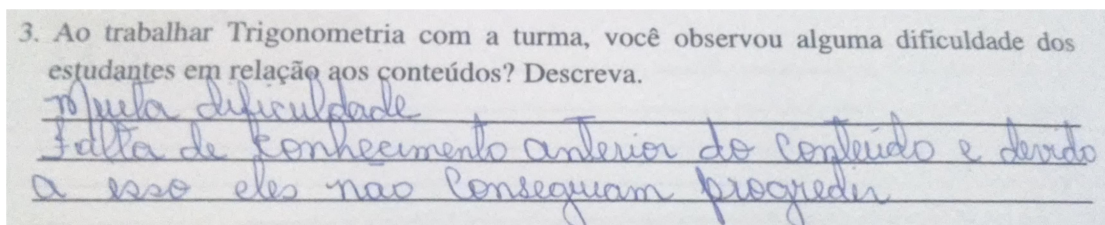 3. Ao trabalhar Trigonometria com a turma, você observou alguma dificuldade dos
estudantes em relação aos conteúdos? Descreva.
Muita dificuldade
Falta de conhecimento anterior do conteúdo e devido
a isso eles não conseguiam progredir